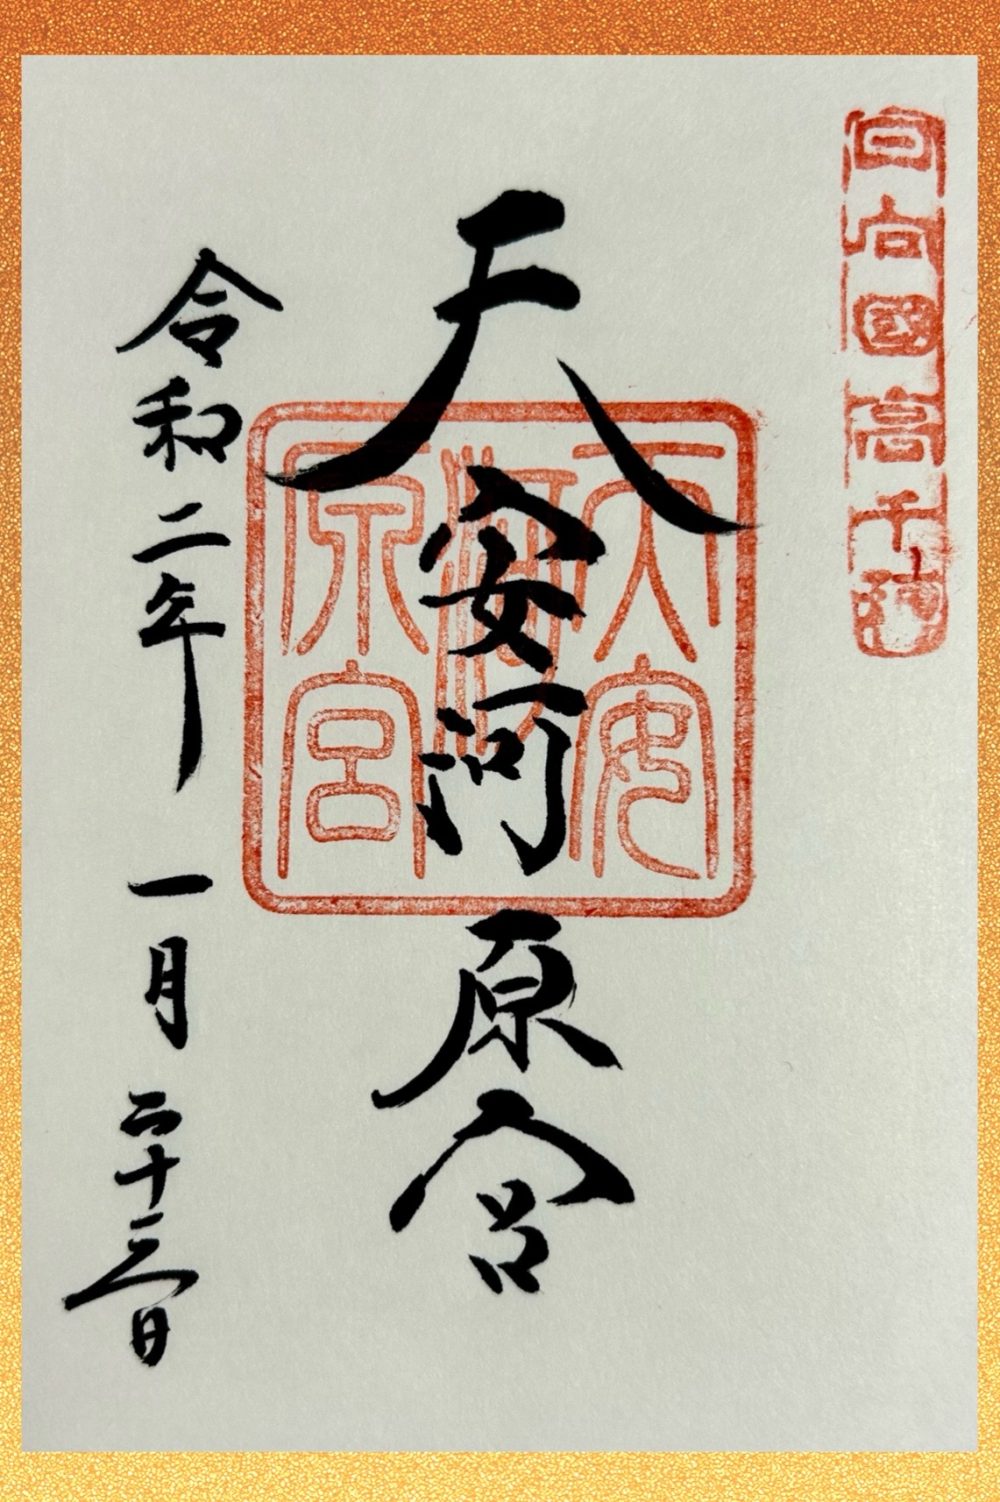 日向國高千穂
天安河原宮
天安河原宮
令和二年 一月 二十三日